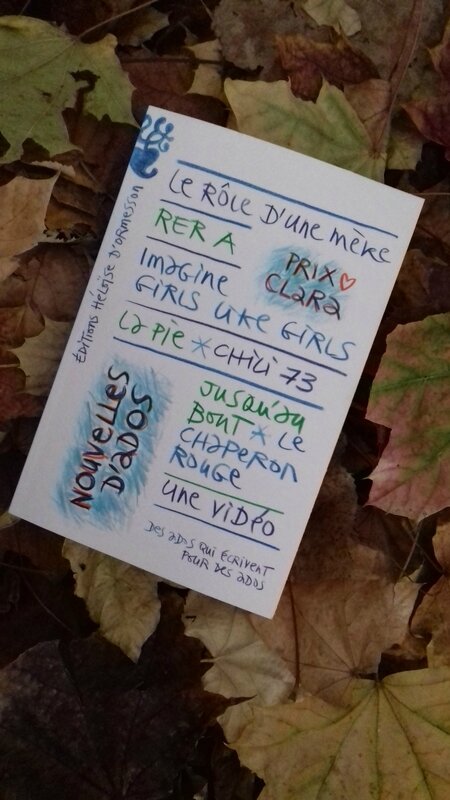 Le Rôle D'une mère
RER A
PRIX
CLARA
Imagine
GIRLS LIKE GIRLS
La Pie * CHILI 73
JUSQU'AU
BOUT * Le
CHAPERON
ROUGE
une VIDÉO
NOUVELLES
D'ADOS
Des ADOS QUI ÉCRIVENT
POUR DES ADOS
ÉDITIONS HÉLOÏSE D'ORMESSON